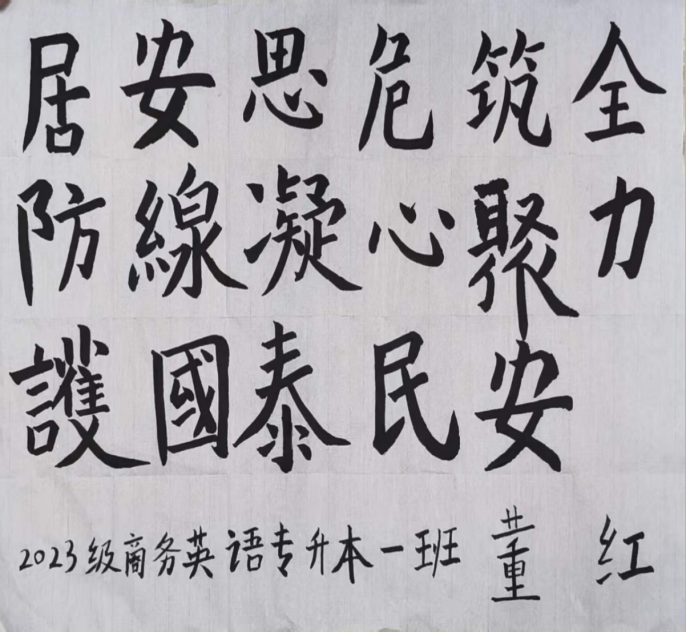 居安思危筑全
防線凝心聚力
護國泰民安
2023级商务英语专升本一班 董红